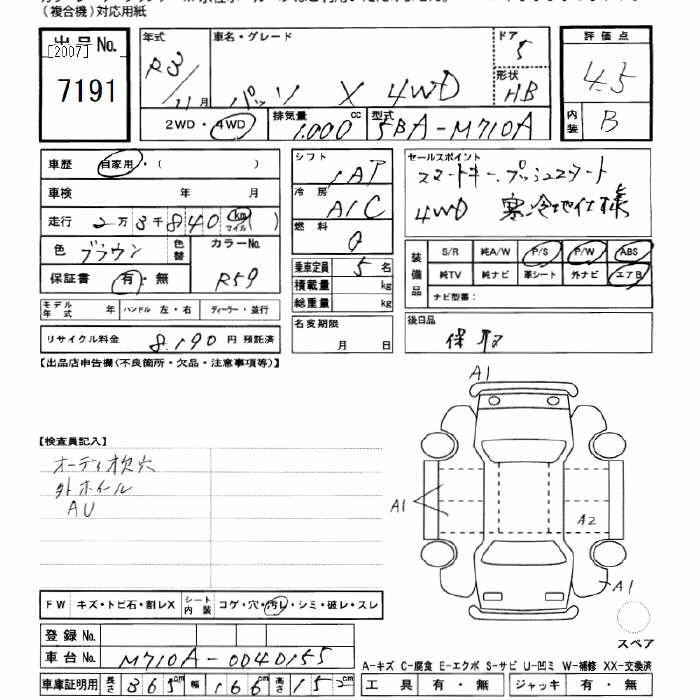 （複合機）対応用紙
出品No.
[2007]
7191
年式 R3/11月
車名・グレード パッソ X 4WD
ドア 5
形状 HB
2WD・4WD
排気量 1,000 cc
型式 5BA-M710A
評価点 4.5
内装 B
車歴 自家用・（ ）
車検 年 月
走行 2万3千840 km マイル
色 ブラウン 色替
カラーNo. R59
保証書 有・無
モデル年式 年 ハンドル 左・右 ディーラー・並行
リサイクル料金 8,190 円 預託済
シフト IAT
冷房 A/C
燃料 G
乗車定員 5 名
積載量 kg
総重量 kg
名変期限 月 日
セールスポイント
スマートキー、プッシュスタート
4WD 寒冷地仕様
装備品 S/R 純A/W P/S P/W ABS
純TV 純ナビ 革シート 外ナビ エアB
ナビ型番：
後日品
保 取
【出品店申告欄（不良箇所・欠品・注意事項等）】
【検査員記入】
オーディオ欠穴
外ホイル
AU
A1
A1
A2
A1
スペア
FW キズ・トビ石・割レX シート内装 コゲ・穴・汚レ・シミ・破レ・スレ
登録No.
車台No. M710A-0040155
車庫証明用 長さ 365cm 幅 166cm 高さ 152cm
A-キズ C-腐食 E-エクボ S-サビ U-凹ミ W-補修 XX-交換済
工具 有・無 ジャッキ 有・無